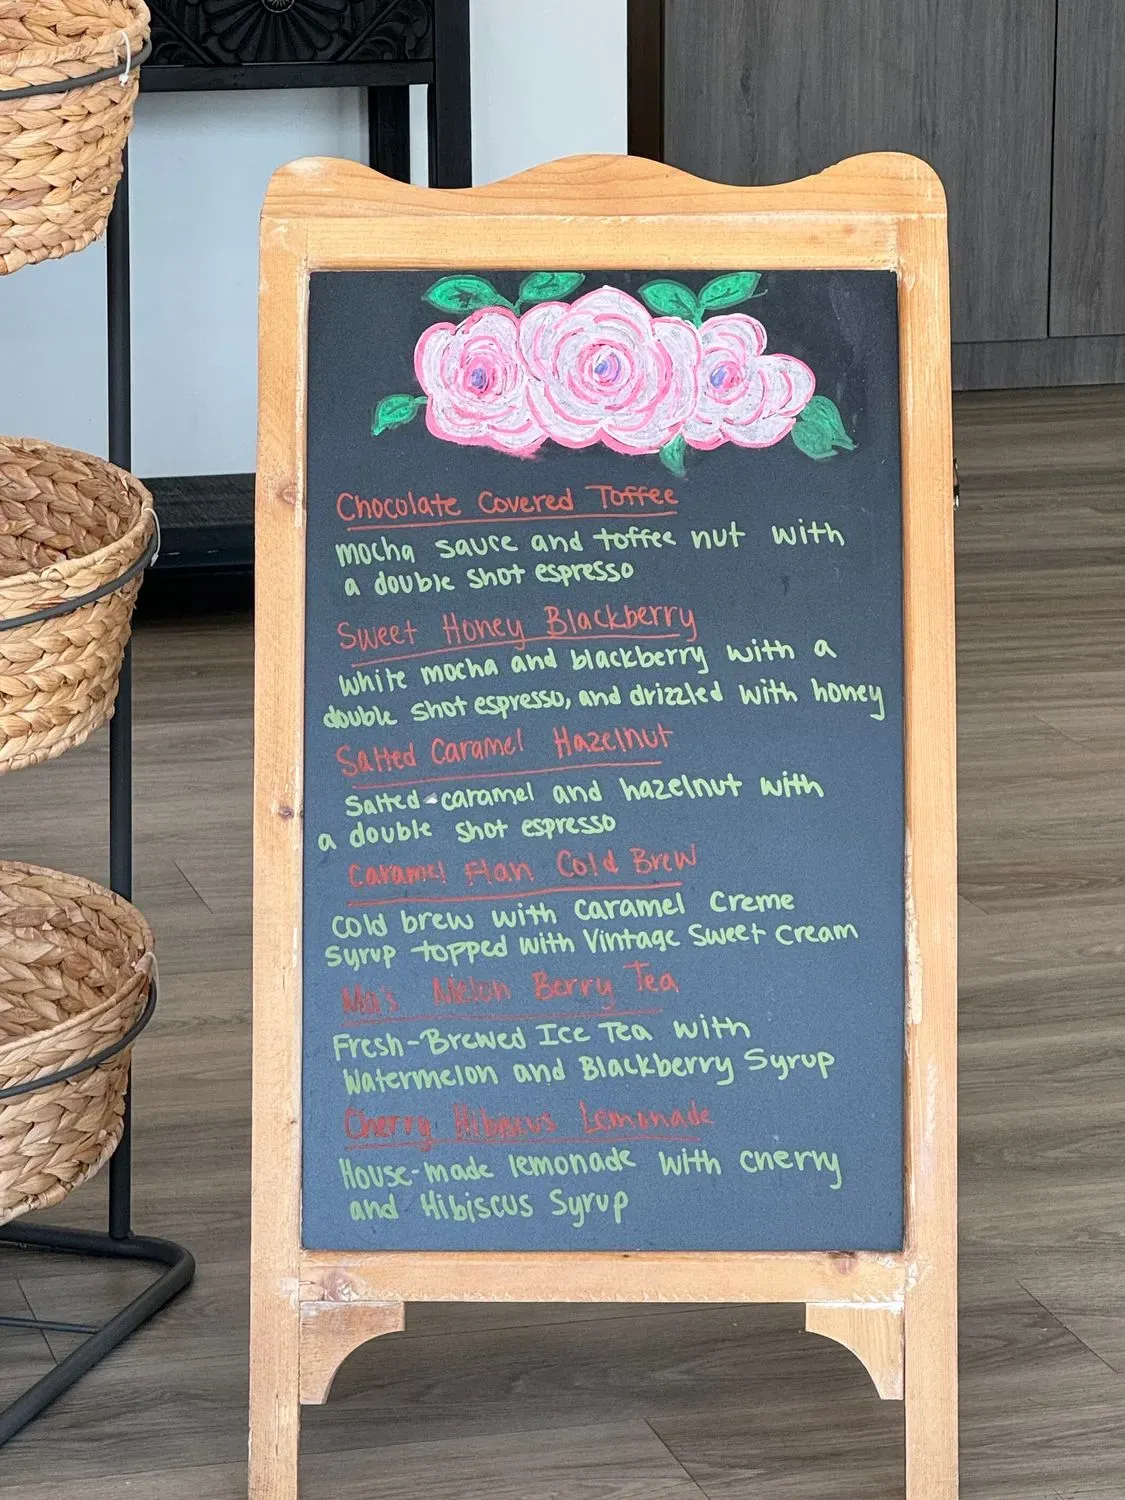 Chocolate Covered Toffee
mocha sauce and toffee nut with
a double shot espresso
Sweet Honey Blackberry
white mocha and blackberry with a
double shot espresso, and drizzled with honey
Salted Caramel Hazelnut
Salted caramel and hazelnut with
a double shot espresso
Caramel Flan Cold Brew
Cold brew with caramel Creme
Syrup topped with Vintage Sweet Cream
Ma's Melon Berry Tea
Fresh-Brewed Ice Tea with
Watermelon and Blackberry Syrup
Cherry Hibiscus Lemonade
House-made lemonade with cherry
and Hibiscus Syrup